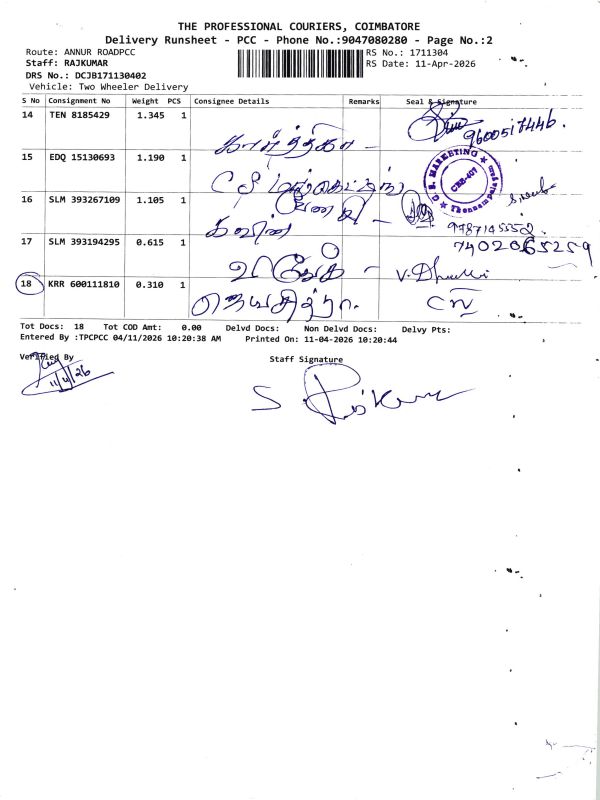 THE PROFESSIONAL COURIERS, COIMBATORE
Delivery Runsheet - PCC - Phone No.:9047080280 - Page No.:2
Route: ANNUR ROADPCC
RS No.: 1711304
Staff: RAJKUMAR
RS Date: 11-Apr-2026
DRS No.: DCJB171130402
Vehicle: Two Wheeler Delivery
S No Consignment No Weight PCS Consignee Details Remarks Seal & Signature
14 TEN 8185429 1.345 1 கார்த்திகா - 9600517446.
15 EDQ 15130693 1.190 1
G.S. MARKETING
CBE-407
16 SLM 393267109 1.105 1 கவின் - 9787145552.
17 SLM 393194295 0.615 1 7402065259
V. Dhu
18 KRR 600111810 0.310 1 ஜெயசித்ரா.
Tot Docs: 18 Tot COD Amt: 0.00 Delvd Docs: Non Delvd Docs: Delvy Pts:
Entered By :TPCPCC 04/11/2026 10:20:38 AM Printed On: 11-04-2026 10:20:44
Verified By Staff Signature
11/4/26
S Rajkumar